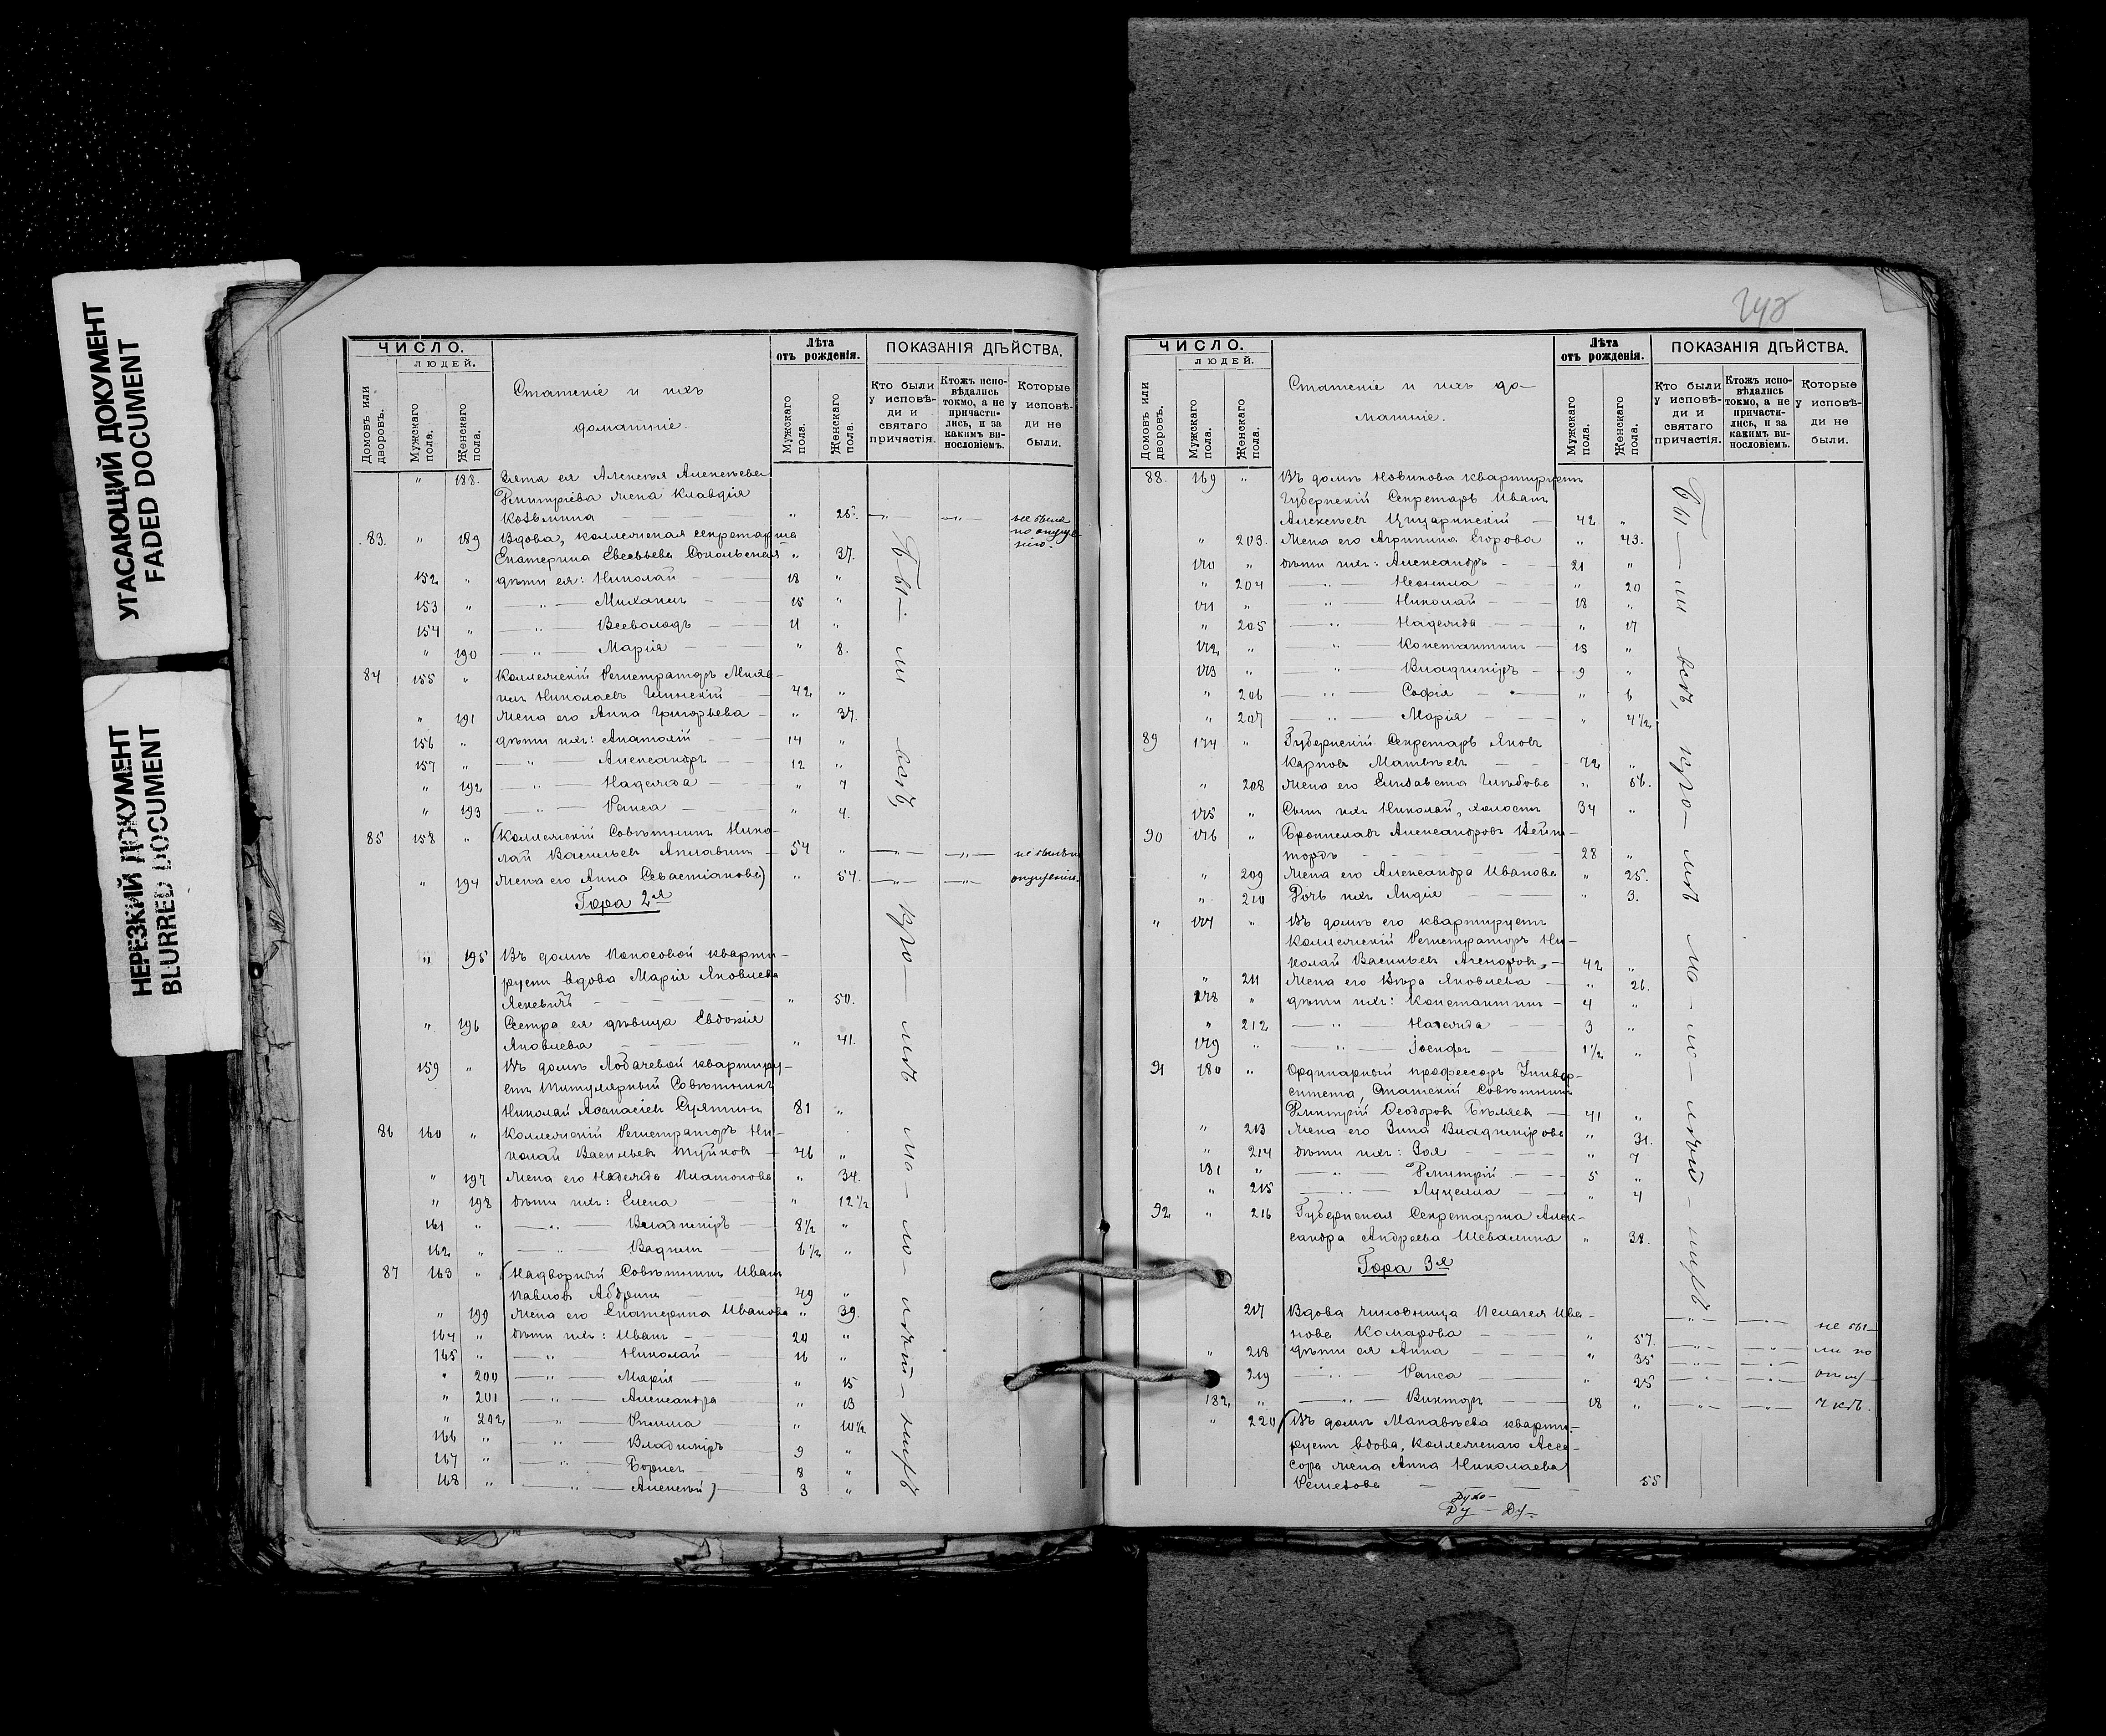 УГАСАЮЩИЙ ДОКУМЕНТ
FADED DOCUMENT
НЕРЕЗКИЙ ДОКУМЕНТ
BLURRED DOCUMENT
ЧИСЛО.
людей.
Домовъ или дворовъ.
Мужскаго пола.
Женскаго пола.
Статскіе и ихъ
домашніе.
Лѣта
отъ рожденія.
Мужскаго пола.
Женскаго пола.
ПОКАЗАНІЯ ДѢЙСТВА.
Кто были у исповѣди и святаго причастія.
Ктожъ исповѣдались токмо, а не причастились, и за какимъ винословіемъ.
Которые у исповѣди не были.
" 188. Зятя ея Алексѣя Алексѣева
Дмитріева жена Клавдія
Козьмина " 25. не была по отлученію.
83. " 189 Вдова, коллежская секретарша
Екатерина Евсевьева Сокольская " 37.
152 " дѣти ея: Николай 18 "
153 " " Михаилъ 15 "
154 " " Всеволодъ 11 "
" 190 " Марія " 8.
84 155 " Коллежскій Регистраторъ Миха-
илъ Николаевъ Глинскій 42 "
" 191 Жена его Анна Григорьева " 37.
156 " дѣти ихъ: Анатолій 14 "
157 " " Александръ 12 "
" 192 " Надежда " 7
" 193 " Раиса " 4.
85 158 " (Коллежскій Совѣтникъ Нико-
лай Васильевъ 54 "
" 194 Жена его Анна Севастіанова) " 54.
Гора 2я
" 195 Въ домѣ кварти-
руетъ вдова Марія Яковлева
" 50.
" 196 Сестра ея дѣвица Евдокія
Яковлева " 41.
159 " Въ домѣ Лобачевой квартиру-
етъ Титулярный Совѣтникъ
Николай Аѳанасіевъ 81 "
86 160 " Коллежскій Регистраторъ Ни-
колай Васильевъ 46 "
" 197 Жена его Надежда Платонова " 34.
" 198 Дѣти ихъ: Елена " 12 1/2
161 " " Владиміръ 8 1/2 "
162 " " Вадимъ 6 1/2 "
87 163 " (Надворный Совѣтникъ Иванъ
Павловъ 49 "
" 199 Жена его Екатерина Иванова " 39.
164 " Дѣти ихъ: Иванъ 20 "
165 " " Николай 16 "
" 200 " Марія " 15
" 201 " Александра " 13
" 202 " Римма " 10 1/2
166 " " Владиміръ 9 "
167 " " Борисъ 8 "
168 " " Алексѣй) 3 "
Бы- ли всѣ, кро- мѣ мо- ло- лѣт- нихъ
ЧИСЛО.
людей.
Домовъ или дворовъ.
Мужскаго пола.
Женскаго пола.
Статскіе и ихъ до-
машніе.
Лѣта
отъ рожденія.
Мужскаго пола.
Женскаго пола.
ПОКАЗАНІЯ ДѢЙСТВА.
Кто были у исповѣди и святаго причастія.
Ктожъ исповѣдались токмо, а не причастились, и за какимъ винословіемъ.
Которые у исповѣди не были.
88. 169 " Въ домѣ Новикова квартируетъ
Губернскій Секретарь Иванъ
Алексѣевъ 42 "
" 203. Жена его Агрипина Егорова " 43.
170 " Дѣти ихъ: Александръ 21 "
" 204 " Неонила " 20
171 " " Николай 18 "
" 205 " Надежда " 17
172 " " Константинъ 13 "
173 " " Владиміръ 9 "
" 206 " Софія " 6
" 207 " Марія " 4 1/2
89 174 " Губернскій Секретарь Яковъ
Карповъ Матвѣевъ 72 "
" 208 Жена его Елизавета Глѣбова " 56.
175 " Сынъ ихъ Николай, холостъ 34 "
90 176 " Брониславъ Александровъ
28 "
" 209 Жена его Александра Иванова " 25.
" 210 Дочь ихъ Лидія " 3.
" 177 " Въ домѣ его квартируетъ
Коллежскій Регистраторъ Ни-
колай Васильевъ 42 "
" 211 Жена его Вѣра Яковлева " 26.
178 " Дѣти ихъ: Константинъ 4 "
" 212 " Надежда 3 "
179 " " Іосифъ 1 1/2 "
91 180 " Ординарный профессоръ Универ-
ситета, Статскій Совѣтникъ
Дмитрій Ѳеодоровъ Бѣляевъ 41 "
" 213 Жена его Зина Владимірова " 31.
" 214 Дѣти ихъ: Зоя " 7
181 " " Дмитрій 5 "
" 215 " Луцелла " 4
92 " 216 Губернская Секретарша Алек-
сандра Андреева Шевалина " 38.
Гора 3я
217 Вдова чиновница Пелагея Ива-
нова Комарова " 57.
" 218 Дѣти ея Анна " 35
219 " Раиса " 25
182 " " Викторъ 18 "
не бы-
ли по
отлу-
" 220 (Въ домѣ Макавѣева кварти-
руетъ вдова, Коллежскаго Ассе-
сора жена Анна Николаева
55
Бы- ли всѣ, кро- мѣ мо- ло- лѣт- нихъ
Духо-